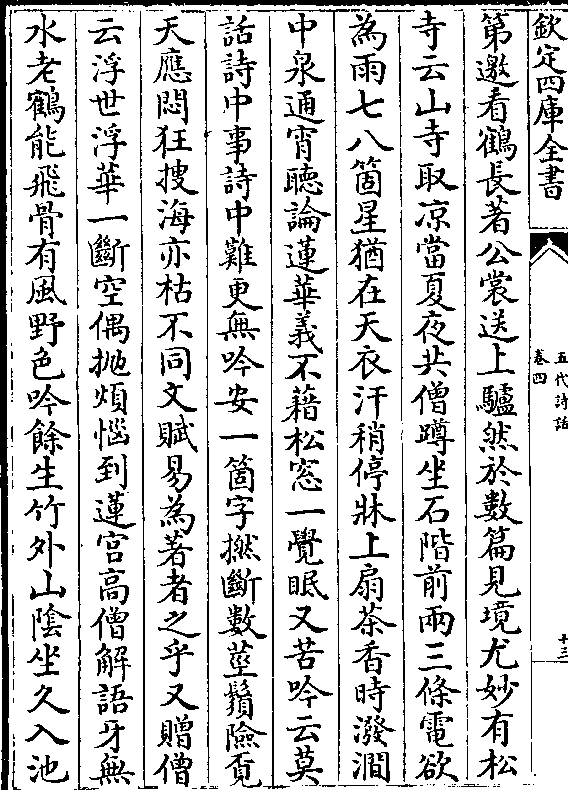 欽定四庫全書
五代詩話
卷四
十三
第邀看鶴長著公裳送上驢然於數篇見境尤妙有松
寺云山寺取凉當夏夜共僧蹲坐石階前兩三條電欲
為雨七八箇星猶在天衣汗稍停牀上扇茶香時潑澗
中泉通宵聽論蓮華義不藉松窓一覺眠又苦吟云莫
話詩中事詩中難更無吟安一箇字撚斷數莖鬚險覔
天應悶狂搜海亦枯不同文賦易為著者之乎又贈僧
云浮世浮華一斷空偶抛煩惱到蓮宮高僧解語牙無
水老鶴能飛骨有風野色吟餘生竹外山隂坐久入池